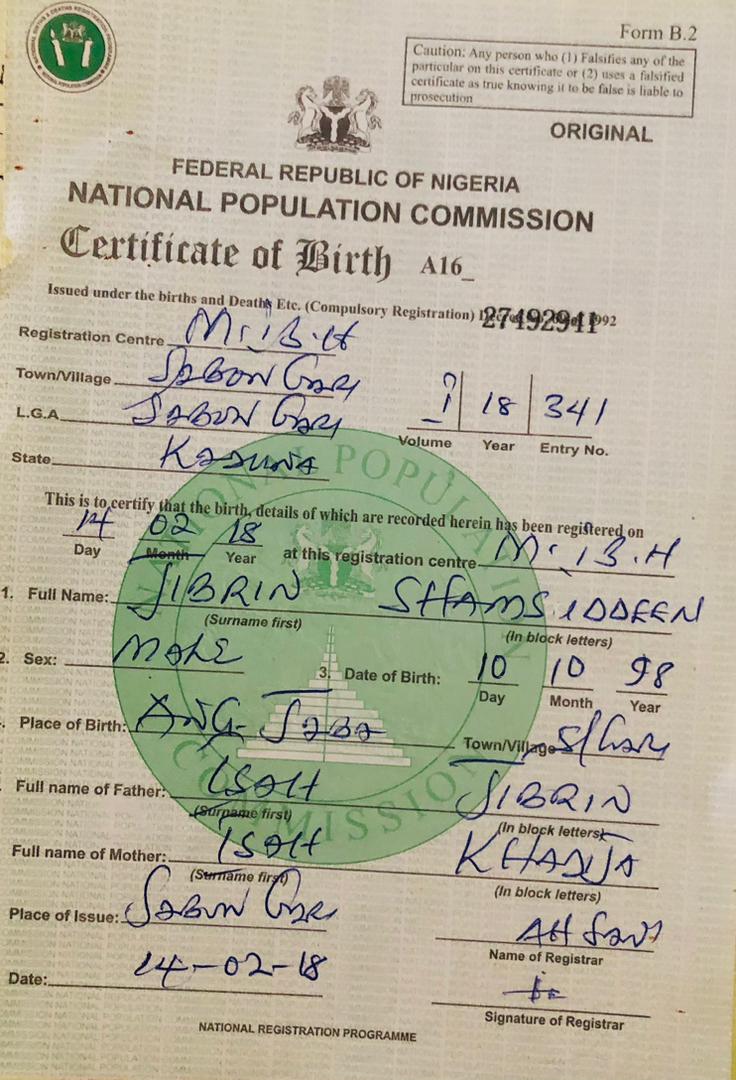 Form B.2
Caution: Any person who (1) Falsifies any of the
particular on this certificate or (2) uses a falsified
certificate as true knowing it to be false is liable to
prosecution
ORIGINAL
FEDERAL REPUBLIC OF NIGERIA
NATIONAL POPULATION COMMISSION
Certificate of Birth A16_
Issued under the births and Deaths Etc. (Compulsory Registration) 1992
27492941
Registration Centre M.I.B.H
Town/Village SABON GARI
L.G.A SABON GARI
1 18 341
Volume Year Entry No.
State KADUNA
This is to certify that the birth, details of which are recorded herein has been registered on
14 02 18 at this registration centre M.I.B.H
Day Month Year
1. Full Name: JIBRIN SHAMSIDDEEN
(Surname first) (In block letters)
2. Sex: MALE 3. Date of Birth: 10 10 98
Day Month Year
Place of Birth: ANG. JABA Town/Village S/GARI
Full name of Father: ISAH JIBRIN
(Surname first) (In block letters)
Full name of Mother: ISAH KHADIJA
(Surname first) (In block letters)
Place of Issue: SABON GARI
Name of Registrar
Date: 14-02-18
Signature of Registrar
NATIONAL REGISTRATION PROGRAMME
NATIONAL POPULATION COMMISSION